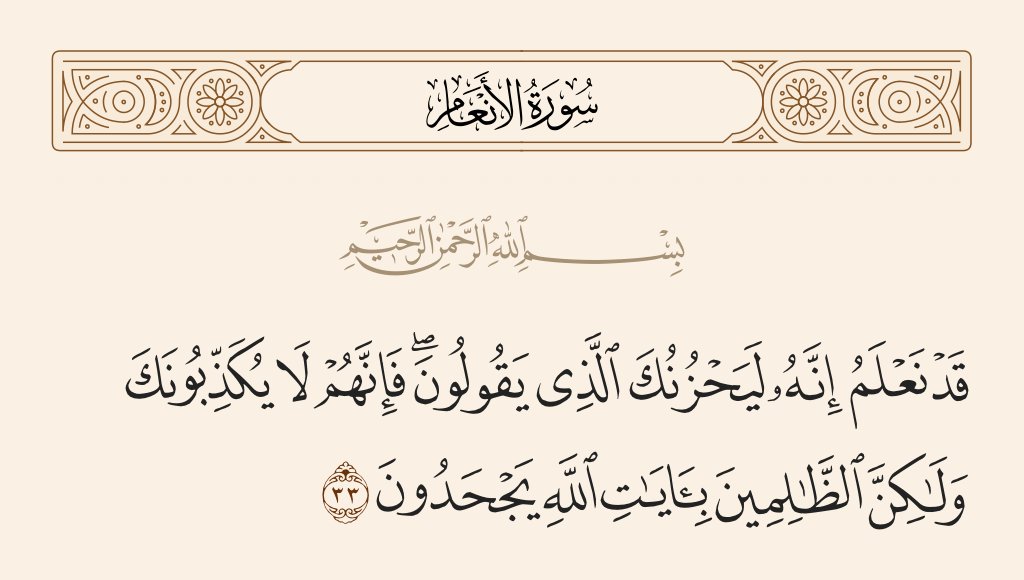 سُورَةُ الأَنْعَامِ
بِسْمِ ٱللَّهِ ٱلرَّحْمَٰنِ ٱلرَّحِيمِ
قَدْ نَعْلَمُ إِنَّهُۥ لَيَحْزُنُكَ ٱلَّذِى يَقُولُونَ ۖ فَإِنَّهُمْ لَا يُكَذِّبُونَكَ
وَلَـٰكِنَّ ٱلظَّـٰلِمِينَ بِـَٔايَـٰتِ ٱللَّهِ يَجْحَدُونَ ٣٣